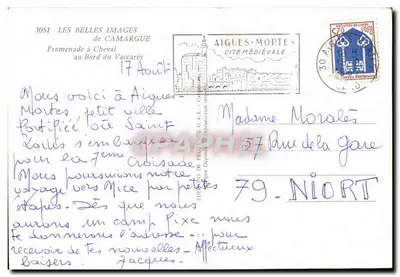 3051 LES BELLES IMAGES
de CAMARGUE
Promenade à Cheval
au Bord du Vaccarès
AIGUES-MORTES
CITÉ MÉDIÉVALE
17 Août
Nous voici à Aigues-
Mortes, petit ville
fortifiée où Saint
Louis s'embarqua
pour la 7eme Croisade
Nous poursuivons notre
voyage vers Nice par petites
étapes. Dès que nous
aurons un camp fixe nous
te donnerons l'adresse... pour
recevoir de tes nouvelles. Affectueux
baisers. Jacques.
Madame Moralès
37 Rue de la Gare
79. NIORT